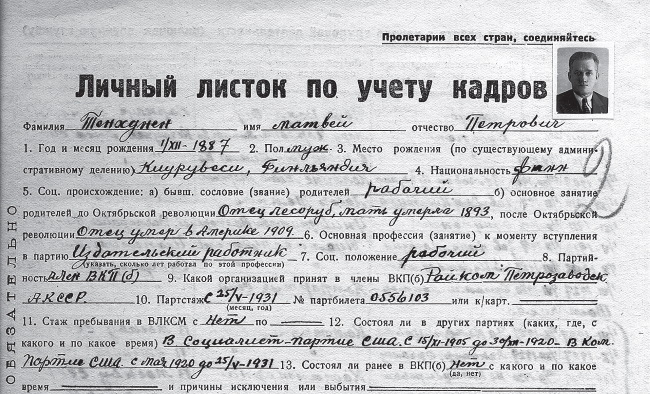 Пролетарии всех стран, соединяйтесь
Личный листок по учету кадров
Фамилия Тенхунен имя Матвей отчество Петрович
1. Год и месяц рождения 1/XII-1887 2. Пол муж. 3. Место рождения (по существующему админи-
стративному делению) Киурувеси, Финляндия 4. Национальность финн
5. Соц. происхождение: а) бывш. сословие (звание) родителей рабочий б) основное занятие
родителей до Октябрьской революции Отец лесоруб, мать умерла 1893, после Октябрьской
революции Отец умер в Америке 1909 6. Основная профессия (занятие) к моменту вступления
в партию Издательский работник 7. Соц. положение рабочий 8. Партий-
(указать, сколько лет работал по этой профессии)
ность член ВКП(б) 9. Какой организацией принят в члены ВКП(б) Райком Петрозаводск
АКССР. 10. Партстаж с 25/V-1931 № партбилета 0556103 или к/карт.
(месяц, год)
11. Стаж пребывания в ВЛКСМ с Нет по — 12. Состоял ли в других партиях (каких, где, с
какого и по какое время) В Социалист-партие США. с 15/VI-1905 до 30/XII-1920- В Ком.
Партие США. с мая 1920 до 25/V-1931 13. Состоял ли ранее в ВКП(б) нет с какого и по какое
(да, нет)
время — и причины исключения или выбытия
ОБЯЗАТЕЛЬНО